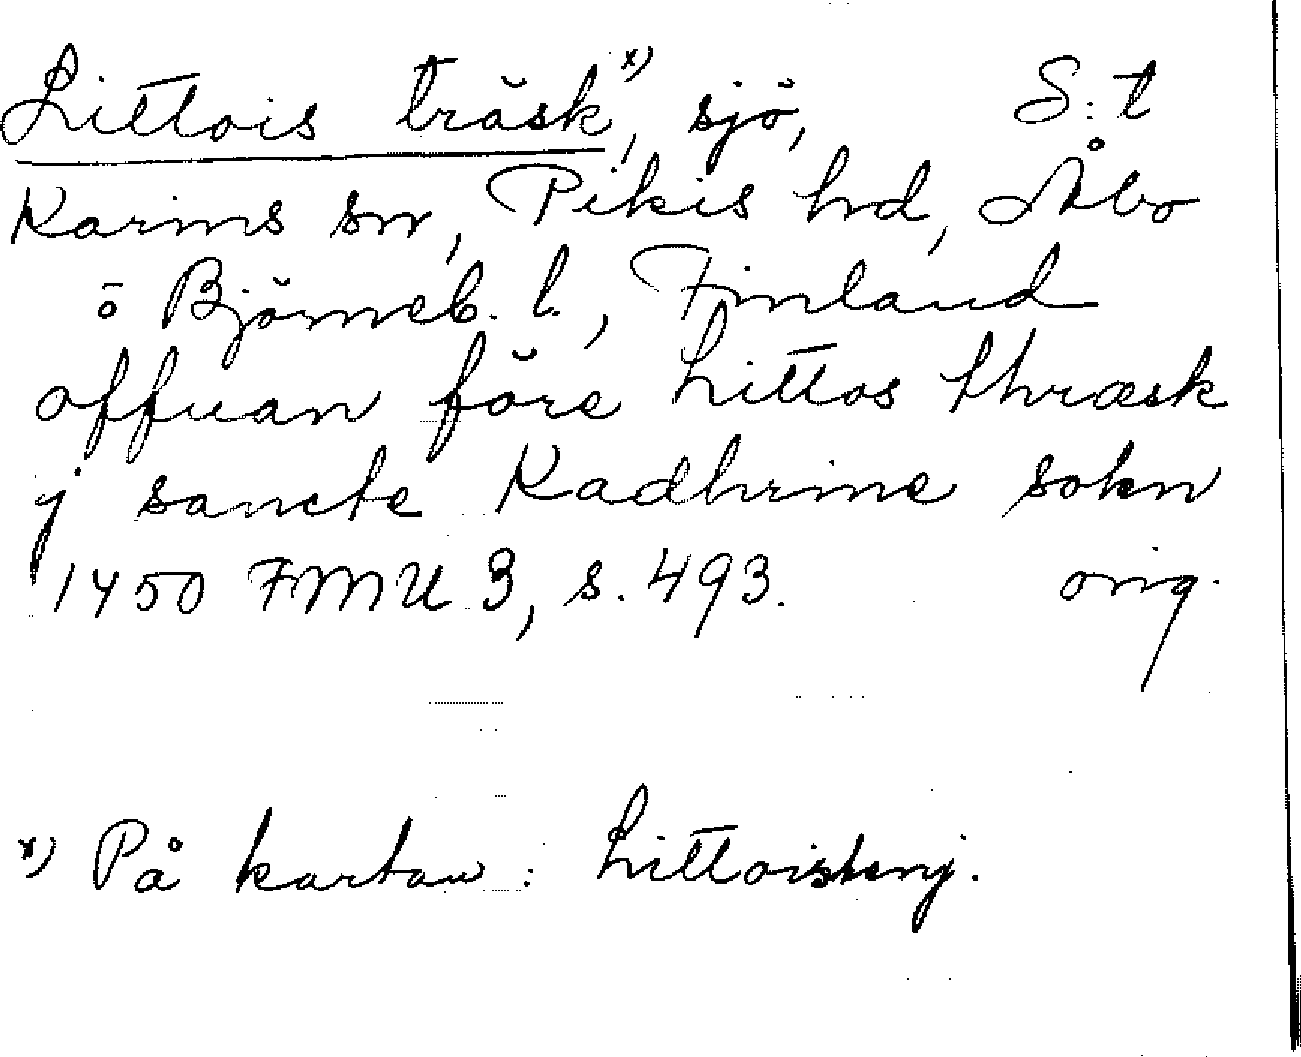 Littois träsk x), sjö, S:t
Karins sn, Pikis hd, Åbo
o Björneb. l., Finland
offuan före Littos thræsk
j sancte Kadhrine sokn
1450 FMU 3, s. 493. orig.
x) På kartan: Littoistenj.